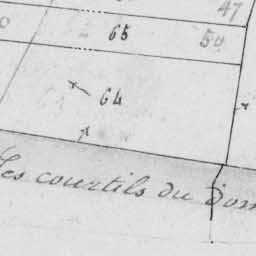 47
65 50
64
Les courtils du